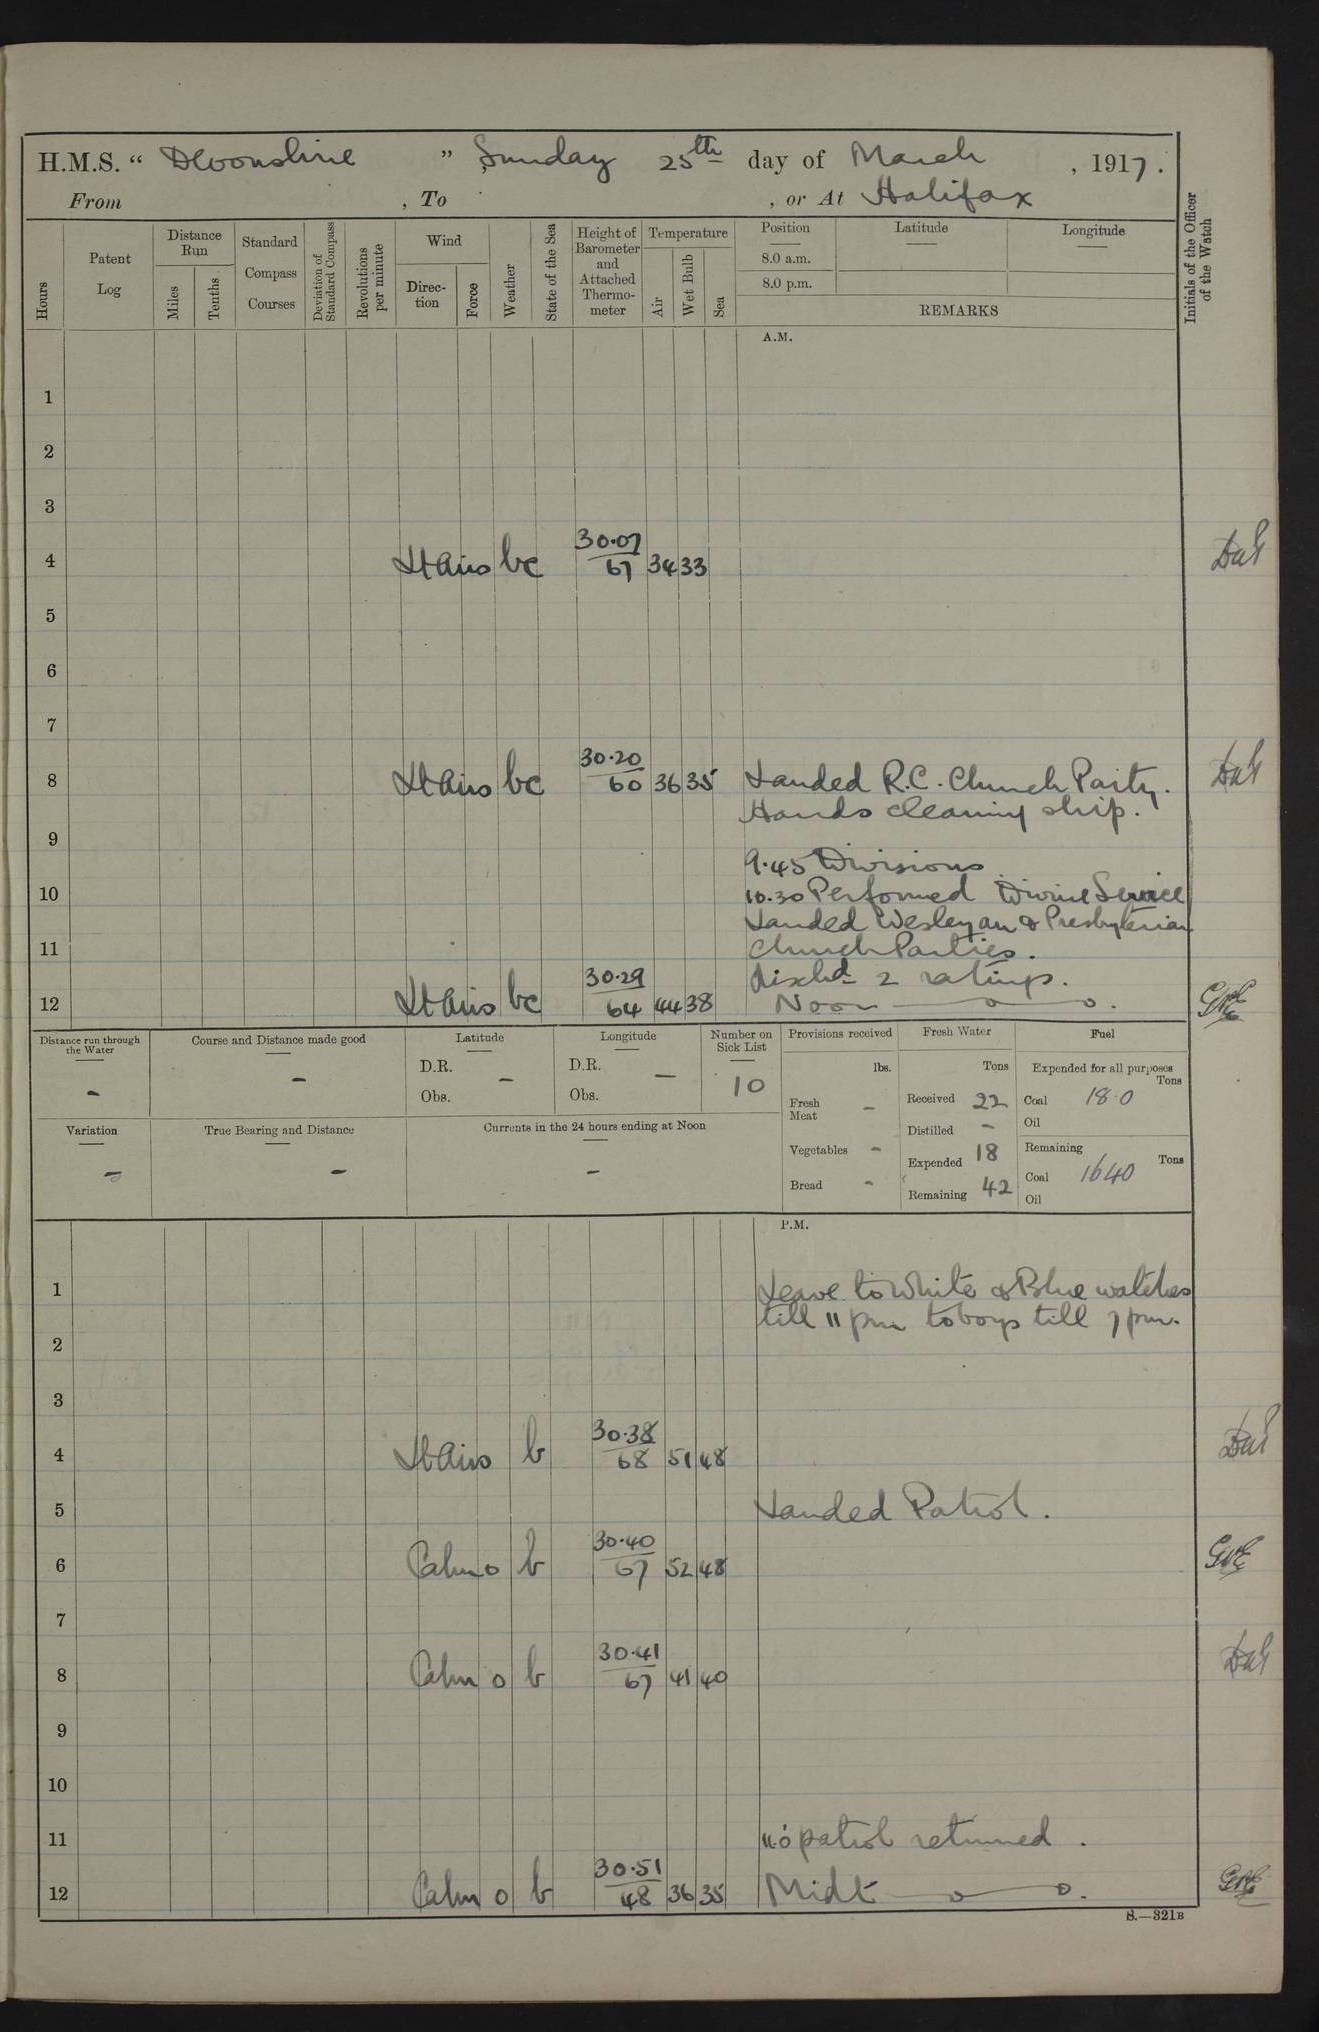 H.M.S. “ Devonshire ” Sunday 25th day of March , 1917.
From , To , or At Halifax
Hours
Patent Log
Distance Run
Miles
Tenths
Standard Compass Courses
Deviation of Standard Compass
Revolutions per minute
Wind
Direction
Force
Weather
State of the Sea
Height of Barometer and Attached Thermometer
Temperature
Air
Wet Bulb
Sea
Position
8.0 a.m.
8.0 p.m.
Latitude
Longitude
REMARKS
Initials of the Officer of the Watch
A.M.
1
2
3
4 Lt Airs bc 30.07 67 34 33
5
6
7
8 Lt Airs bc 30.20 60 36 35 Landed R.C. Church Party.
Hands cleaning ship.
9
9.45 Divisions
10 10.30 Performed Divine Service
Landed Wesleyan & Presbyterian
11 Church Parties.
Dischd 2 ratings.
12 Lt Airs bc 30.29 64 44 38 Noon
Distance run through the Water
-
Course and Distance made good
-
Latitude
D.R. -
Obs.
Longitude
D.R. -
Obs.
Number on Sick List
10
Provisions received
lbs.
Fresh Meat -
Vegetables -
Bread -
Fresh Water
Tons
Received 22
Distilled -
Expended 18
Remaining 42
Fuel
Expended for all purposes
Tons
Coal 18.0
Oil
Remaining
Tons
Coal 1640
Oil
Variation
-
True Bearing and Distance
-
Currents in the 24 hours ending at Noon
-
P.M.
1 Leave to White & Blue watches
till 11 pm to boys till 7 pm.
2
3
4 Lt Airs b 30.38 68 51 48
5 Landed Patrol.
6 Calm 0 b 30.40 67 52 48
7
8 Calm 0 b 30.41 67 41 40
9
10
11 11.0 patrol returned.
12 Calm 0 b 30.51 48 36 35 Midt
S.—321B